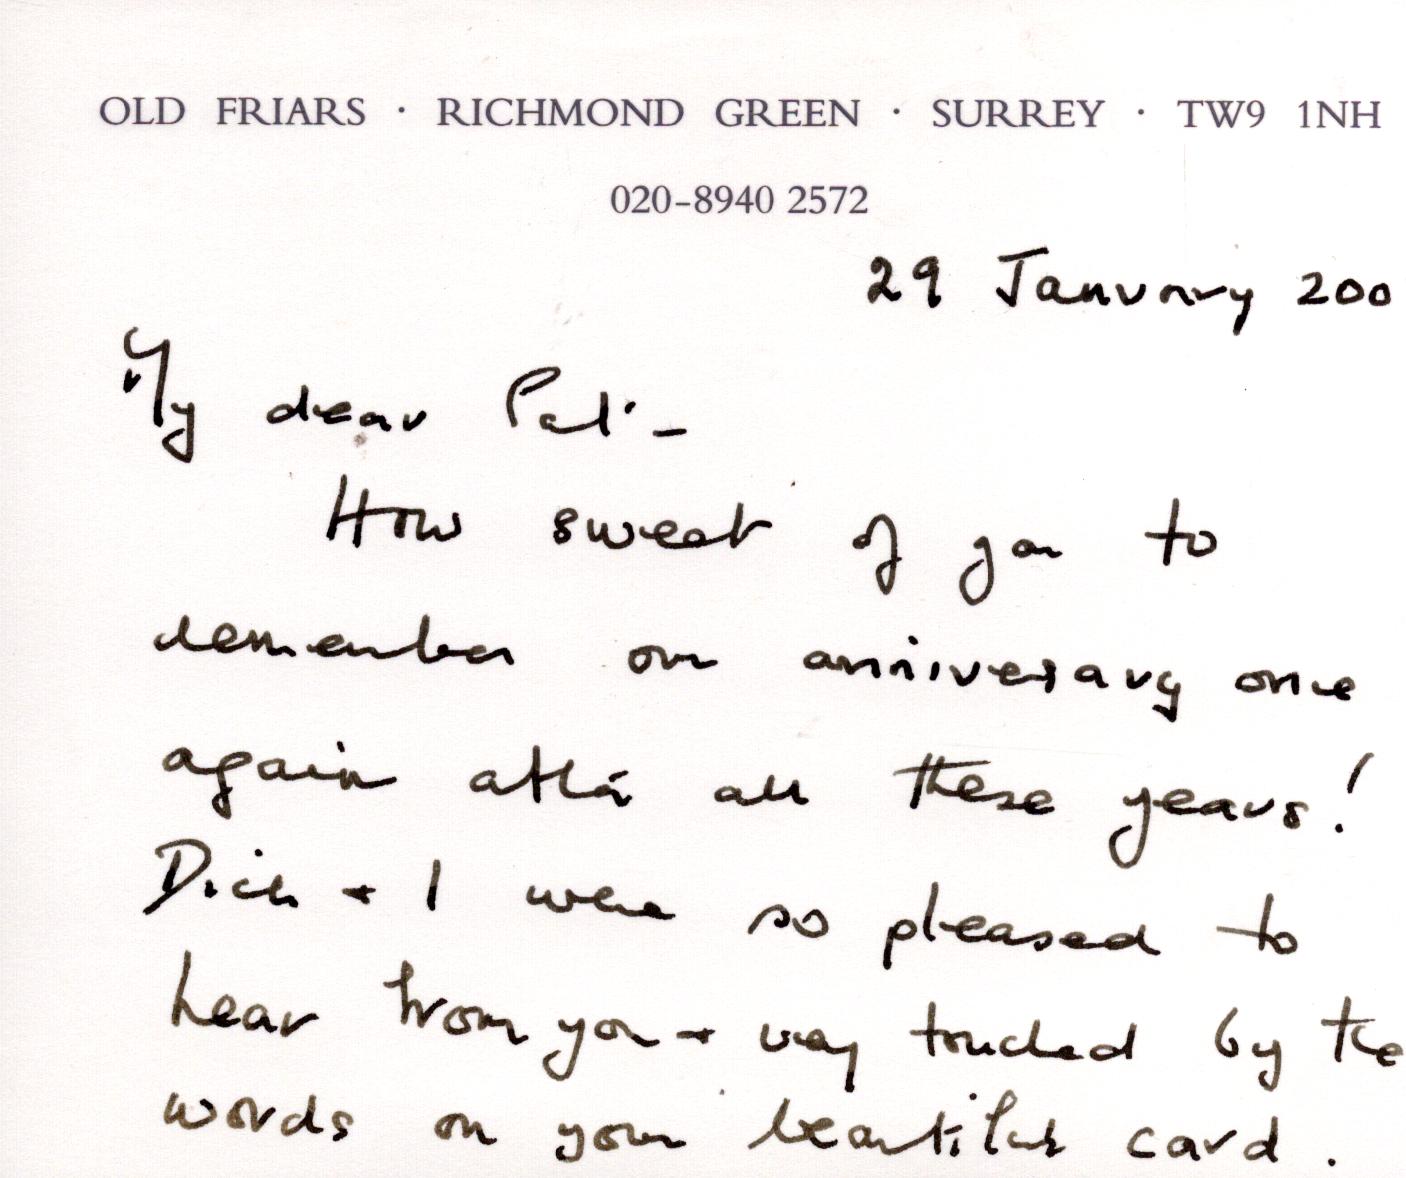 OLD FRIARS · RICHMOND GREEN · SURREY · TW9 1NH
020-8940 2572
29 January 200
My dear Pat -
How sweet of you to
remember our anniversary once
again after all these years!
Dick + I were so pleased to
hear from you + very touched by the
words on your beautiful card.